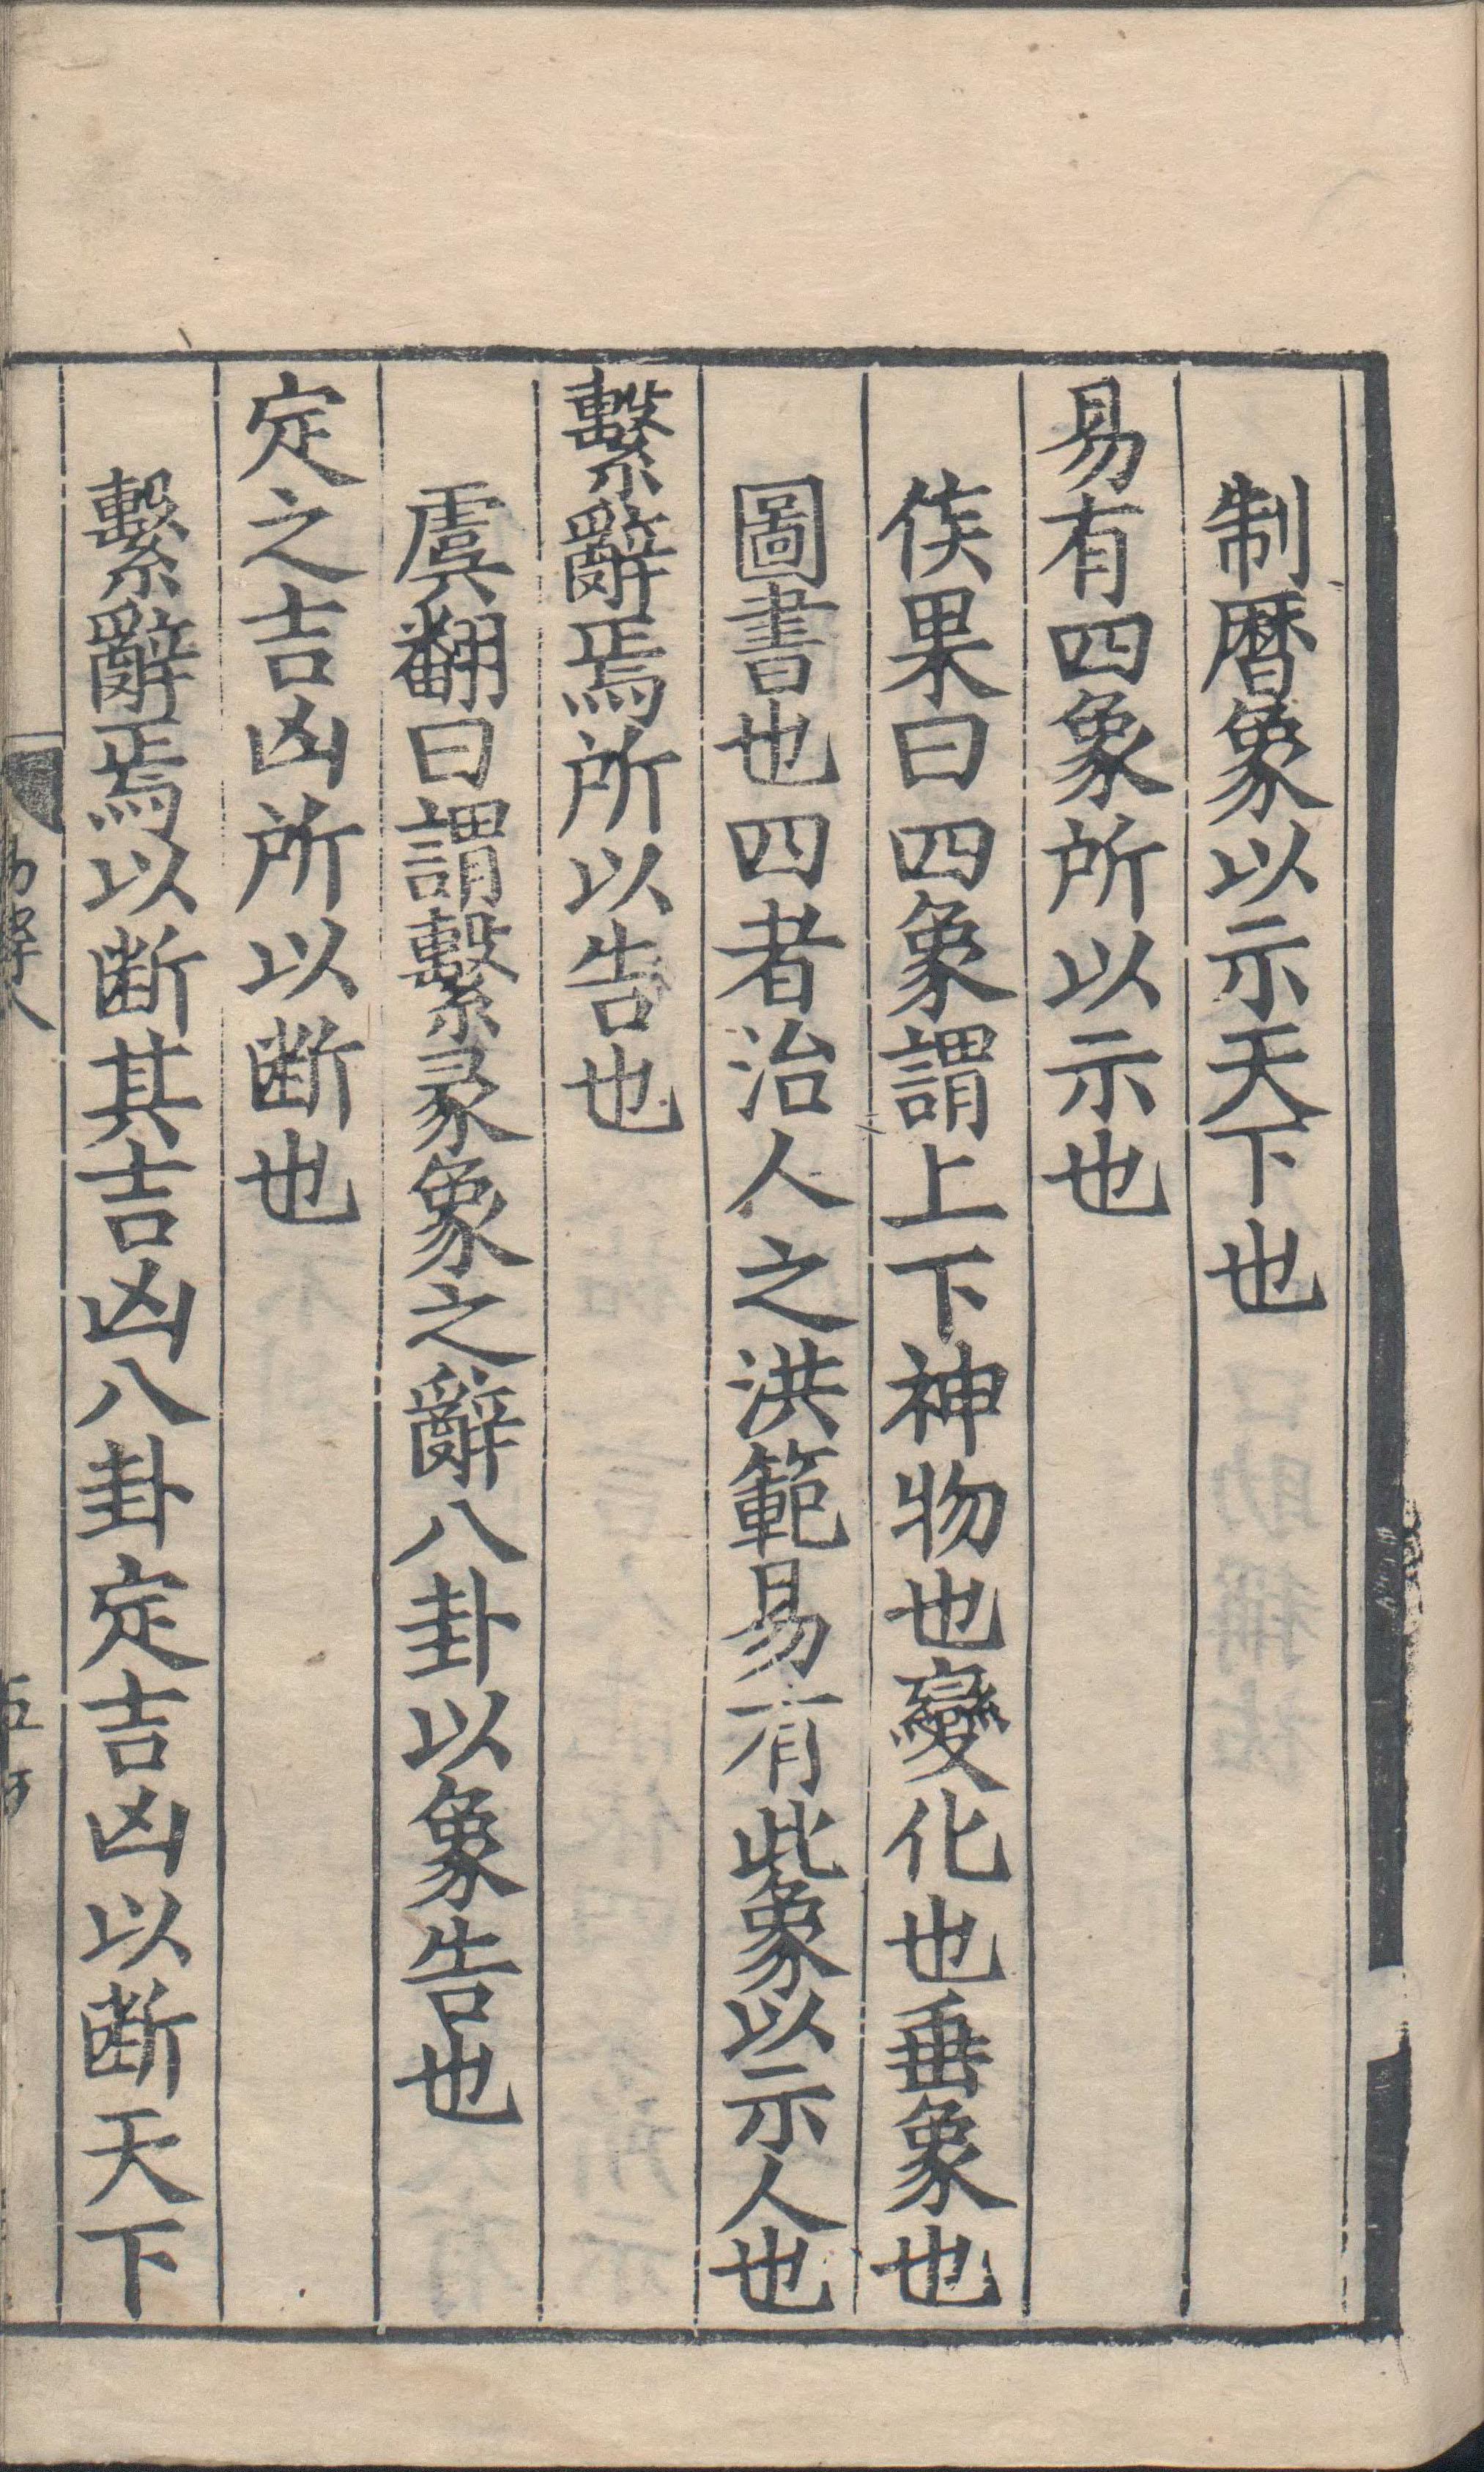 制曆象以示天下也
易有四象所以示也
侯果曰四象謂上下神物也變化也垂象也
圖書也四者治人之洪範易有此象以示人也
繫辭焉所以告也
虞翻曰謂繫彖象之辭八卦以象告也
定之吉凶所以斷也
繫辭焉以斷其吉凶八卦定吉凶以斷天下